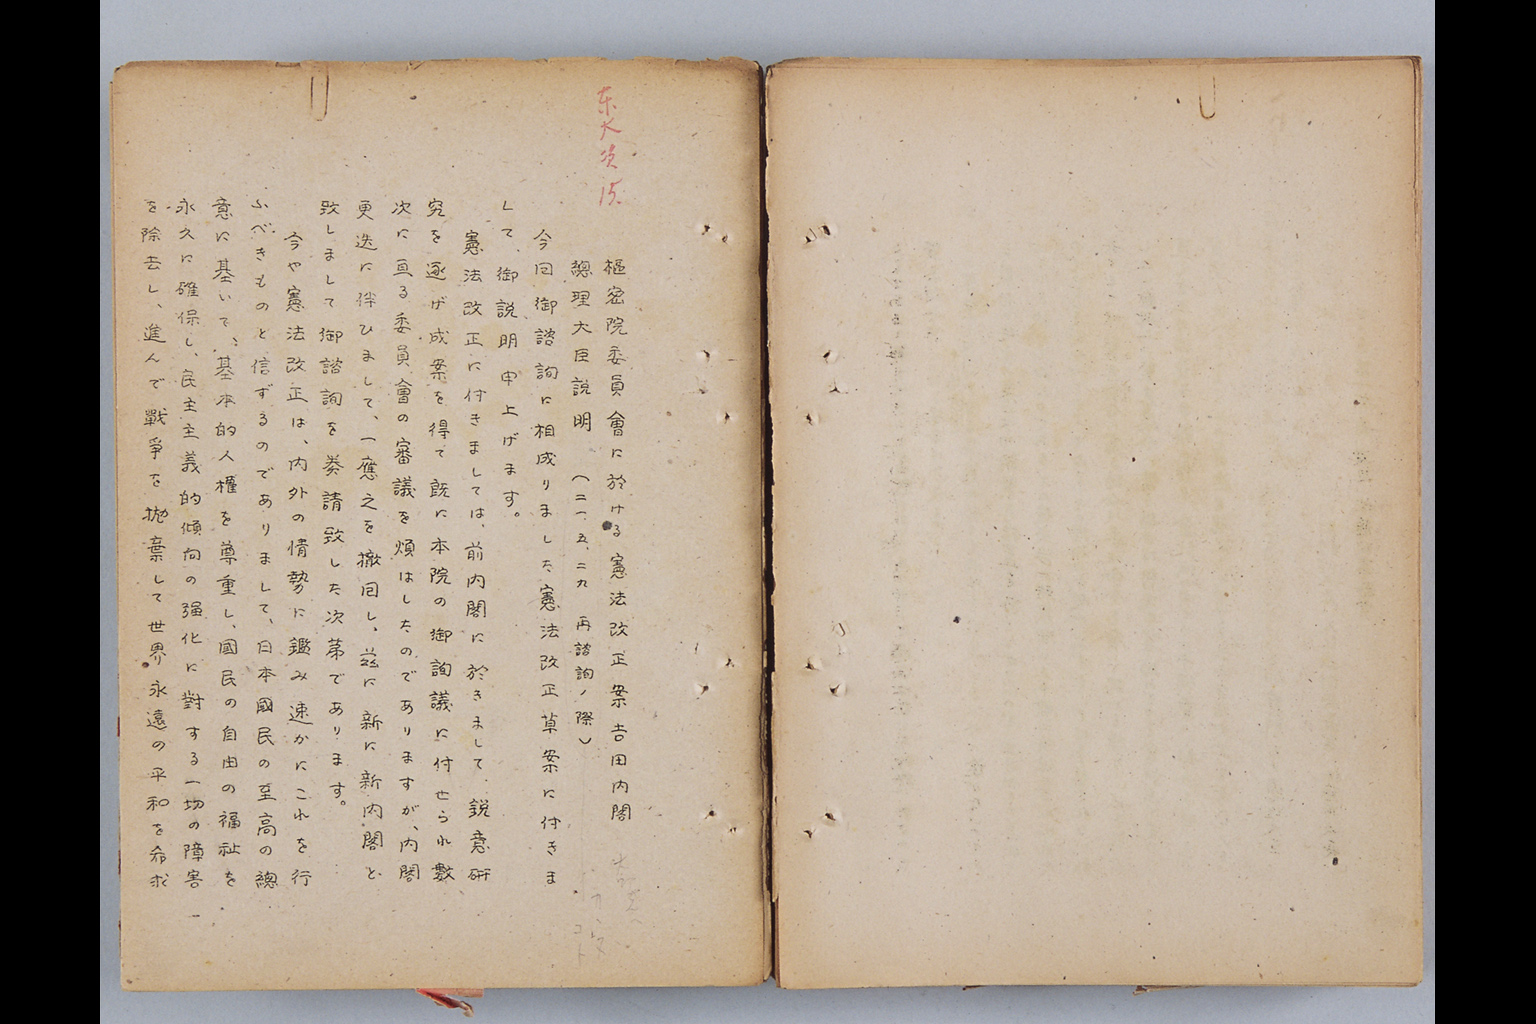 樞密院委員會に於ける憲法改正案吉田内閣
總理大臣説明 (二一、五、二九 再諮詢ノ際)
今回御諮詢に相成りました憲法改正草案に付きま
して、御説明申上げます。
憲法改正に付きましては、前内閣に於きまして、鋭意研
究を遂げ成案を得て既に本院の御詢議に付せられ數
次に亘る委員會の審議を煩はしたのでありますが、内閣
更迭に伴ひまして、一應之を撤回し、玆に新に新内閣と
致しまして御諮詢を奏請致した次第であります。
今や憲法改正は、内外の情勢に鑑み速かにこれを行
ふべきものと信ずるのでありまして、日本國民の至高の總
意に基いて、基本的人權を尊重し、國民の自由の福祉を
永久に確保し、民主主義的傾向の强化に對する一切の障害
を除去し、進んで戰爭を抛棄して世界永遠の平和を希求